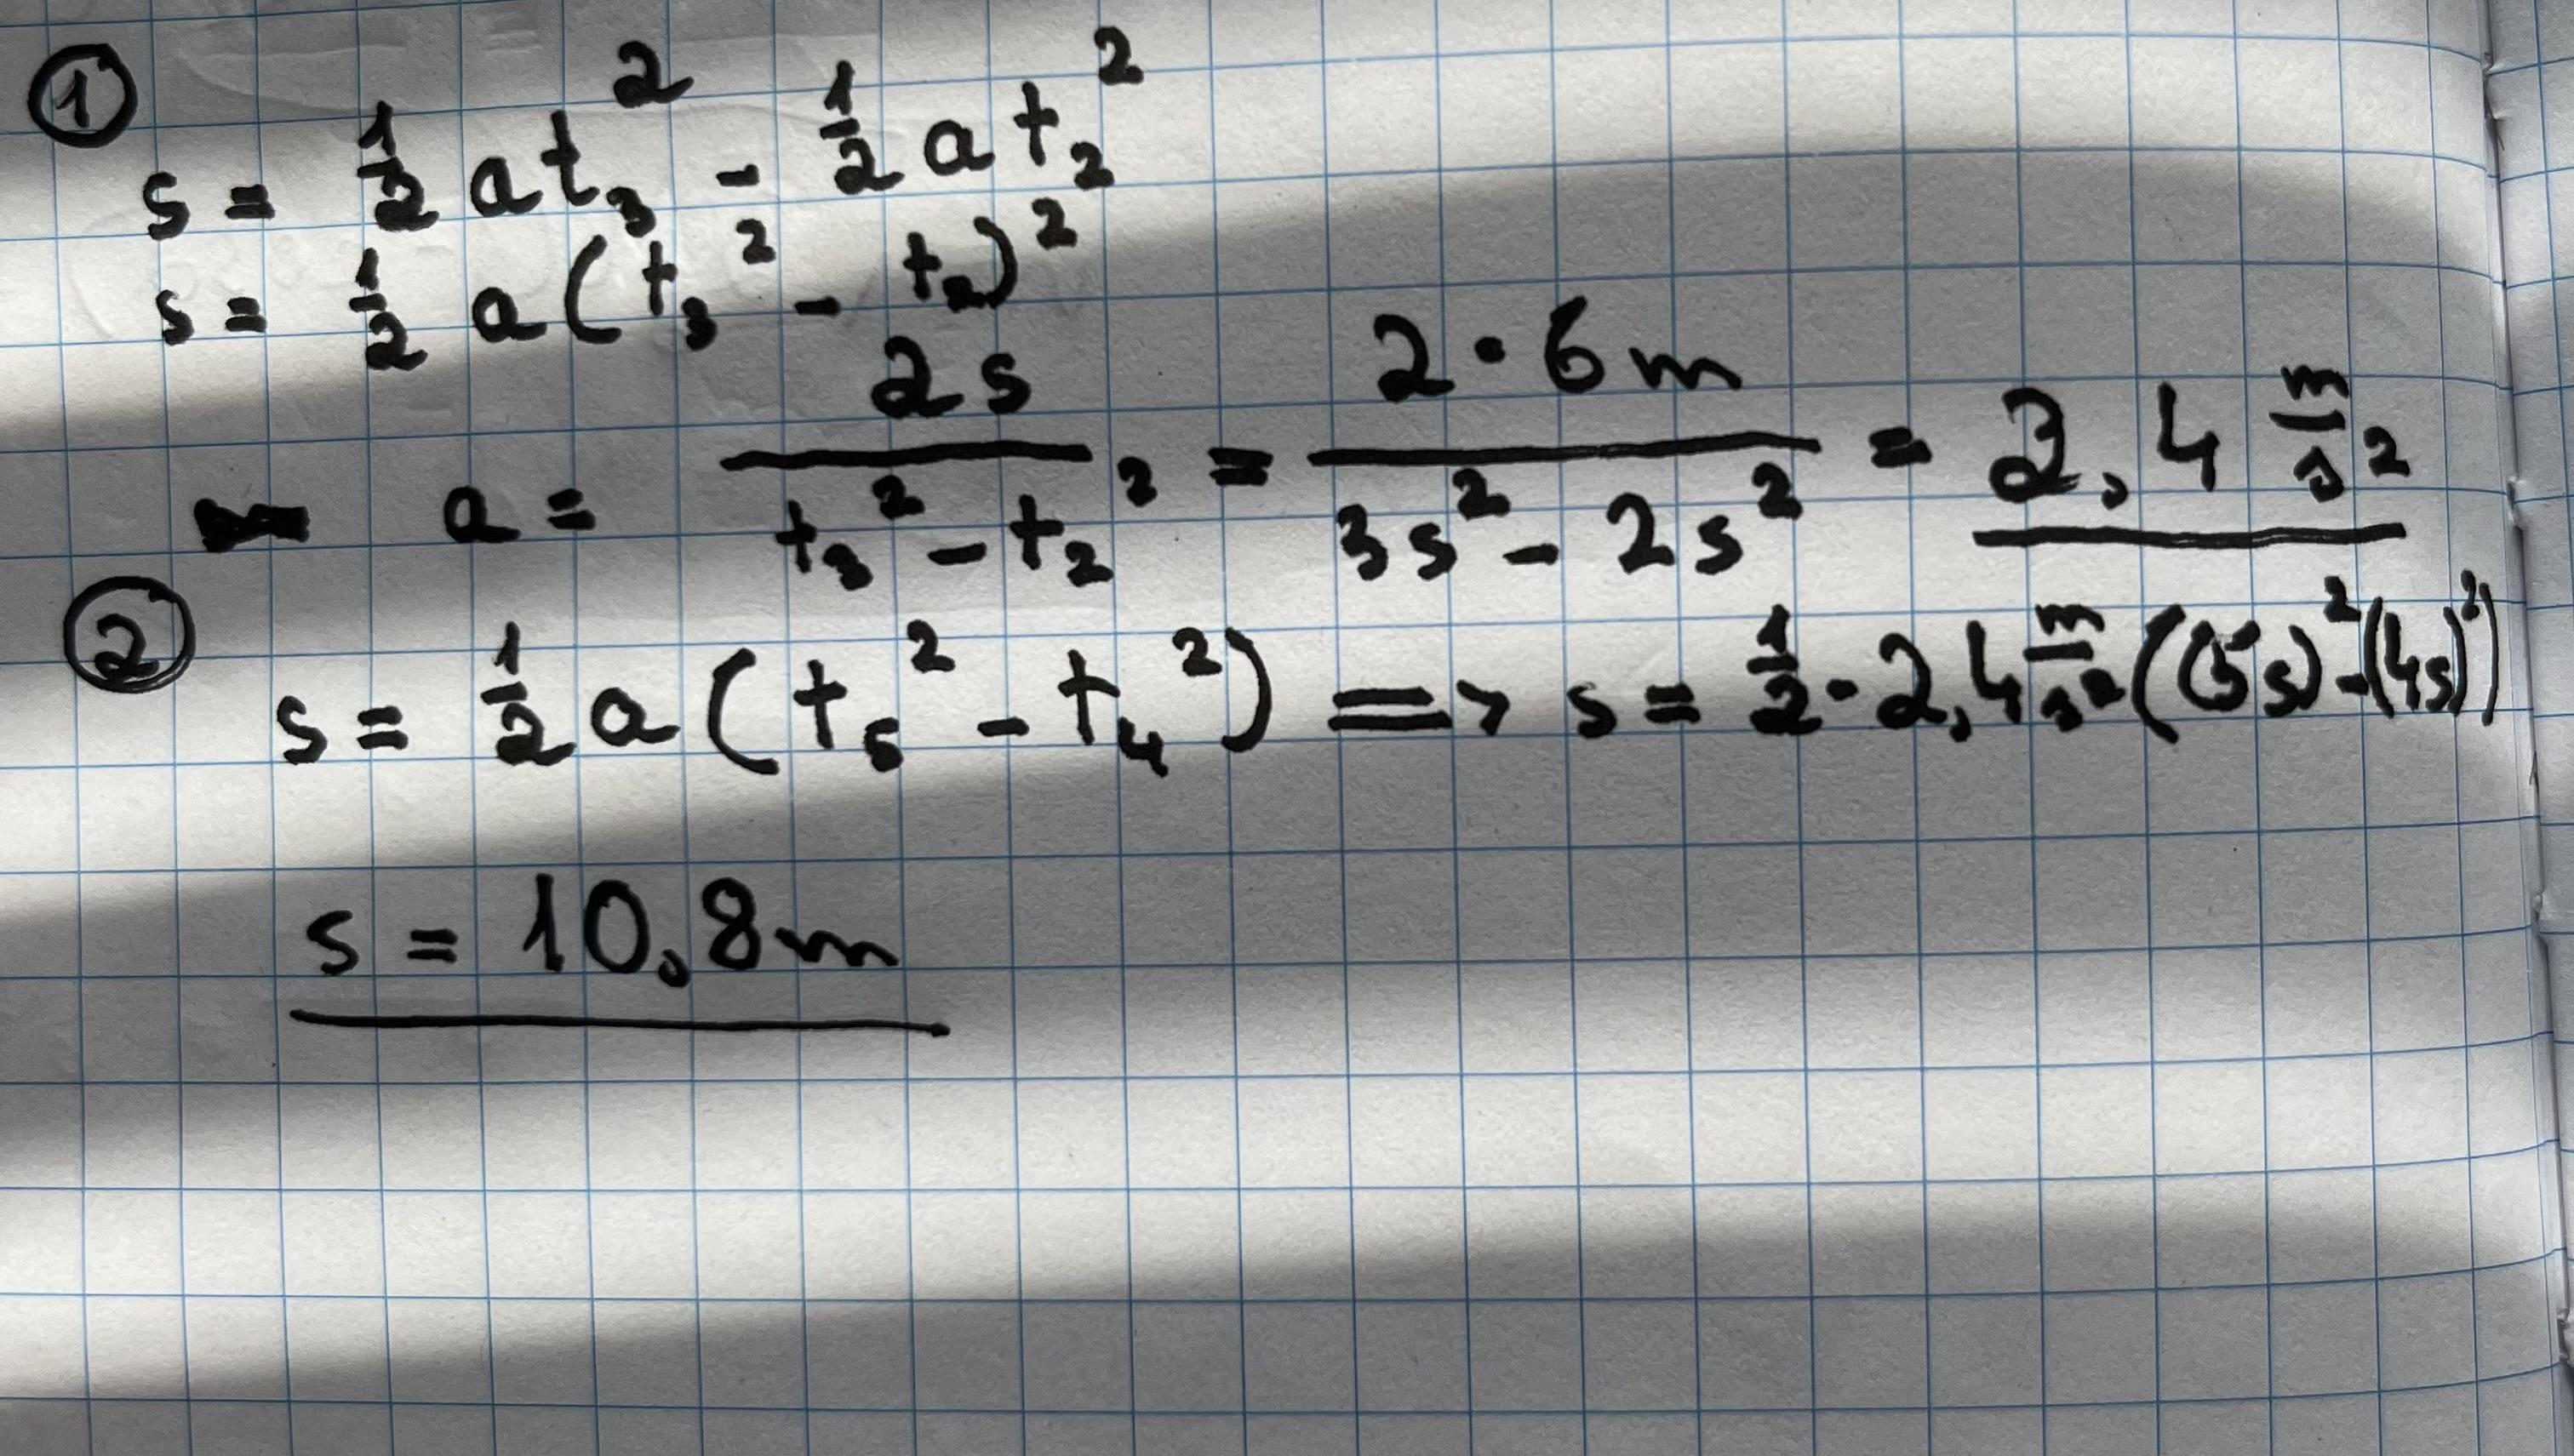 ①
s = ½ at₃² - ½ at₂²
s = ½ a(t₃² - t₂)²
a = 2s / t₃² - t₂² = 2 · 6m / 3s² - 2s² = 2,4 m/s²
② s = ½ a(t₅² - t₄²) => s = ½ · 2,4 m/s² ((5s)² - (4s)²)
s = 10,8m